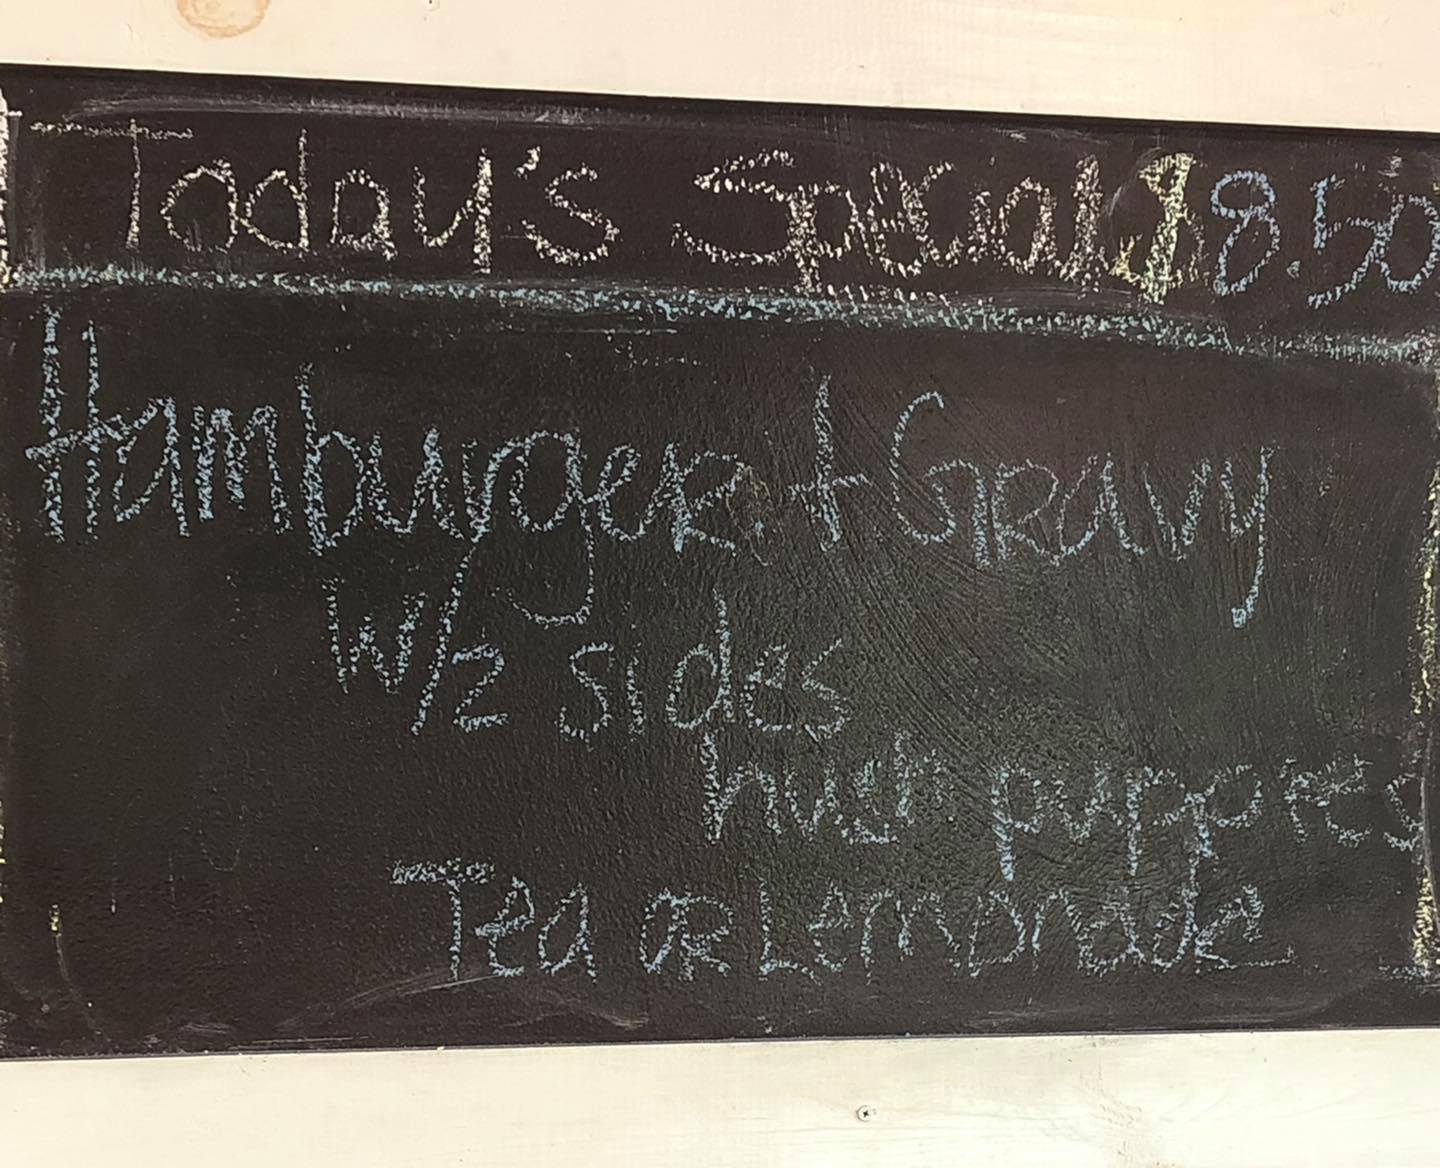 Today's Special $8.50
Hamburger + Gravy
w/2 sides
hush puppies
Tea or Lemonade